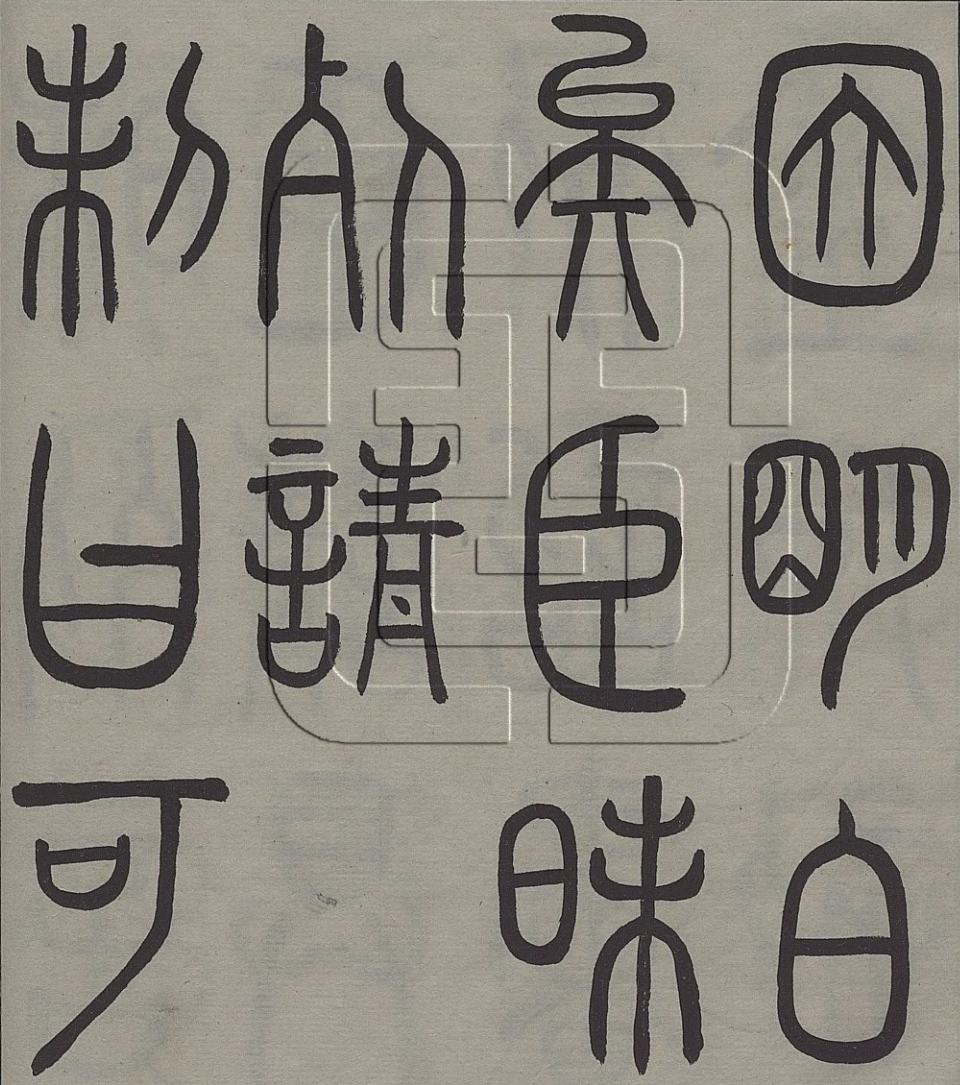 因明白
矣臣昧
死請
制曰可